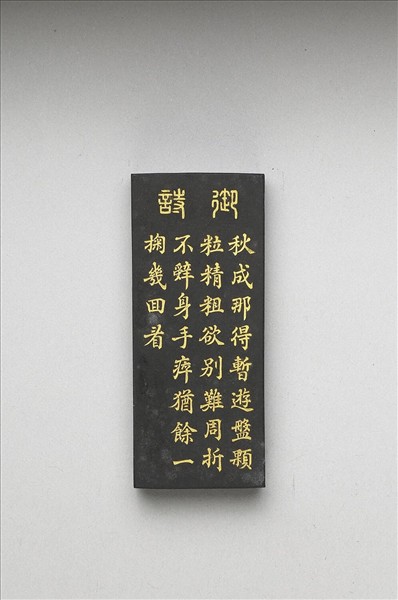 御詩
秋成那得暫遊盤顆
粒精粗欲別難周折
不辤身手瘁猶餘一
掬幾回看